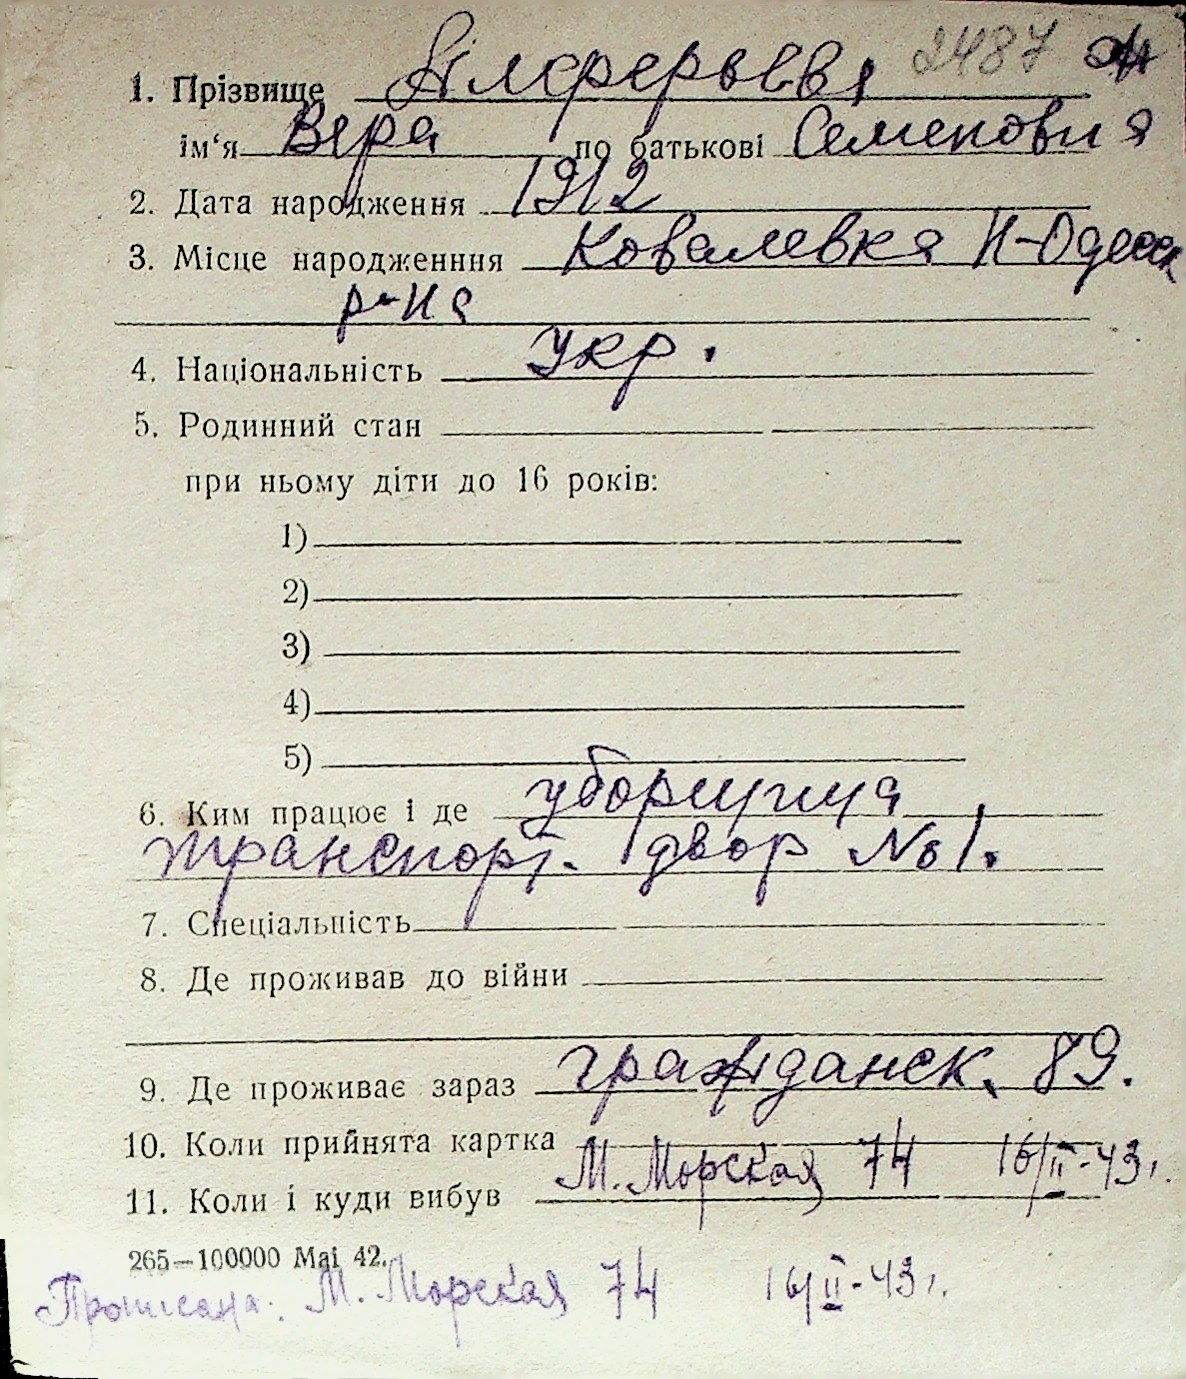 2487
1. Прізвище
ім‘я Вера по батькові Семеновна
2. Дата народження 1912
3. Місце народженння Ковалевка Н-Одесск
р-на
4. Національність Укр.
5. Родинний стан
при ньому діти до 16 років:
1)
2)
3)
4)
5)
6. Ким працює і де уборщица
транспорт. двор № 1.
7. Спеціальність
8. Де проживав до війни
9. Де проживає зараз гражданск. 89.
10. Коли прийнята картка
11. Коли і куди вибув М. Морская 74 16/II-43г.
265—100000 Маі 42.
Прописана: М. Морская 74 16/II-43г.